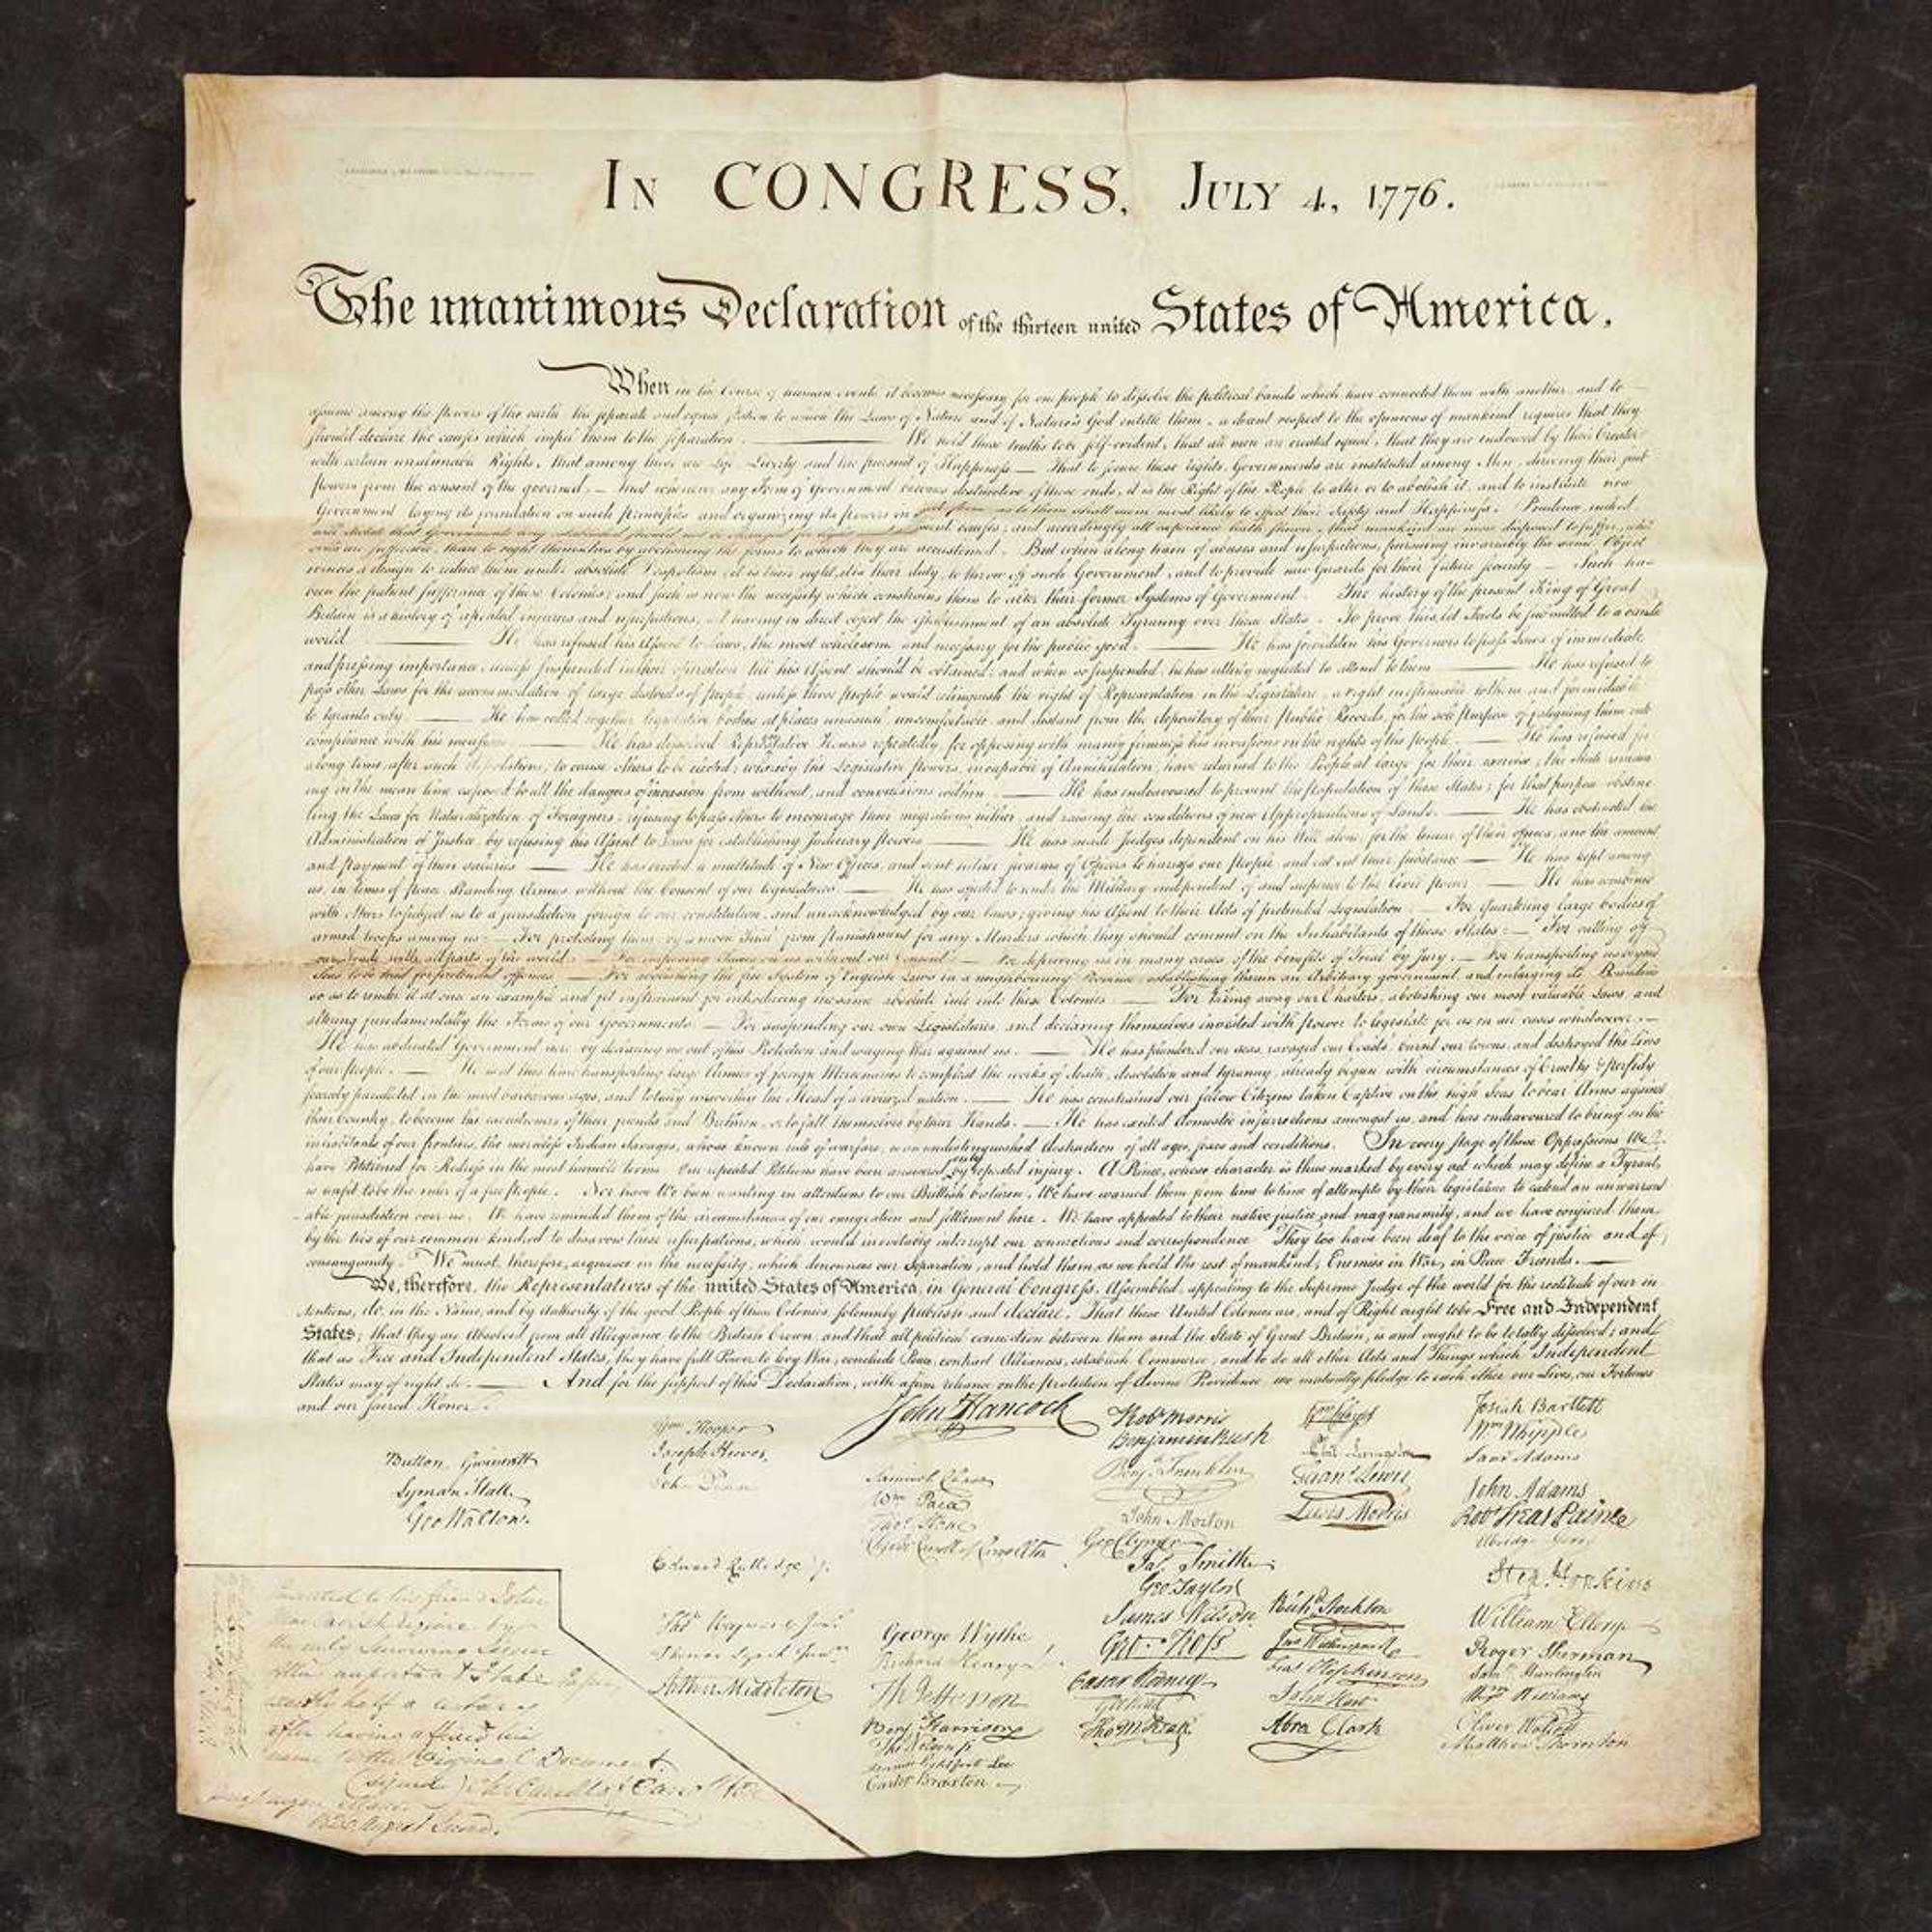 IN CONGRESS, JULY 4, 1776.
The unanimous Declaration of the thirteen united States of America.
When in the Course of human events it becomes necessary for one people to dissolve the political bands which have connected them with another, and to
assume among the powers of the earth, the separate and equal station to which the Laws of Nature and of Nature's God entitle them, a decent respect to the opinions of mankind requires that they
should declare the causes which impel them to the separation. — We hold these truths to be self-evident, that all men are created equal, that they are endowed by their Creator
with certain unalienable Rights, that among these are Life, Liberty and the pursuit of Happiness — That to secure these rights, Governments are instituted among Men, deriving their just
powers from the consent of the governed, — That whenever any Form of Government becomes destructive of these ends, it is the Right of the People to alter or to abolish it, and to institute new
Government, laying its foundation on such principles and organizing its powers in such form, as to them shall seem most likely to effect their Safety and Happiness. Prudence, indeed
causes; and accordingly all experience hath shewn, that mankind are more disposed to suffer, while
evils are sufferable, than to right themselves by abolishing the forms to which they are accustomed. But when a long train of abuses and usurpations, pursuing invariably the same Object
evinces a design to reduce them under absolute Despotism, it is their right, it is their duty, to throw off such Government, and to provide new Guards for their future security — Such has
been the patient sufferance of these Colonies; and such is now the necessity which constrains them to alter their former Systems of Government. The history of the present King of Great
Britain is a history of repeated injuries and usurpations, all having in direct object the establishment of an absolute Tyranny over these States. To prove this, let Facts be submitted to a candid
world. — He has refused his Assent to Laws, the most wholesome and necessary for the public good. — He has forbidden his Governors to pass Laws of immediate
and pressing importance, unless suspended in their operation till his Assent should be obtained; and when so suspended, he has utterly neglected to attend to them — He has refused to
pass other Laws for the accommodation of large districts of people, unless those people would relinquish the right of Representation in the Legislature, a right inestimable to them and formidable
to tyrants only. — He has called together legislative bodies at places unusual, uncomfortable, and distant from the depository of their Public Records, for the sole purpose of fatiguing them into
compliance with his measures — He has dissolved Representative Houses repeatedly, for opposing with manly firmness his invasions on the rights of the people. — He has refused for
a long time, after such dissolutions, to cause others to be elected; whereby the Legislative powers, incapable of Annihilation, have returned to the People at large for their exercise; the State remain
ing in the mean time exposed to all the dangers of invasion from without, and convulsions within. — He has endeavoured to prevent the population of these States; for that purpose obstruc
ting the Laws for Naturalization of Foreigners; refusing to pass others to encourage their migrations hither, and raising the conditions of new Appropriations of Lands. — He has obstructed the
Administration of Justice, by refusing his Assent to Laws for establishing Judiciary powers — He has made Judges dependent on his Will alone, for the tenure of their offices, and the amount
and payment of their salaries — He has erected a multitude of New Offices, and sent hither swarms of Officers to harrass our people, and eat out their substance — He has kept among
us, in times of peace, Standing Armies without the Consent of our legislatures. — He has affected to render the Military independent of and superior to the Civil power — He has combined
with others to subject us to a jurisdiction foreign to our constitution, and unacknowledged by our laws; giving his Assent to their Acts of pretended Legislation: — For Quartering large bodies of
armed troops among us: — For protecting them, by a mock Trial from punishment for any Murders which they should commit on the Inhabitants of these States: — For cutting off
our Trade with all parts of the world: — For imposing Taxes on us without our Consent: — For depriving us in many cases, of the benefits of Trial by Jury: — For transporting us beyond
Seas to be tried for pretended offences — For abolishing the free System of English Laws in a neighbouring Province, establishing therein an Arbitrary government, and enlarging its Boundaries
so as to render it at once an example and fit instrument for introducing the same absolute rule into these Colonies — For taking away our Charters, abolishing our most valuable Laws, and
altering fundamentally the Forms of our Governments: — For suspending our own Legislatures, and declaring themselves invested with power to legislate for us in all cases whatsoever. —
He has abdicated Government here, by declaring us out of his Protection and waging War against us. — He has plundered our seas, ravaged our Coasts, burnt our towns, and destroyed the lives
of our people. — He is at this time transporting large Armies of foreign Mercenaries to compleat the works of death, desolation and tyranny, already begun with circumstances of Cruelty & perfidy
scarcely paralleled in the most barbarous ages, and totally unworthy the Head of a civilized nation. — He has constrained our fellow Citizens taken Captive on the high Seas to bear Arms against
their Country, to become the executioners of their friends and Brethren, or to fall themselves by their Hands. — He has excited domestic insurrections amongst us, and has endeavoured to bring on the
inhabitants of our frontiers, the merciless Indian Savages, whose known rule of warfare, is an undistinguished destruction of all ages, sexes and conditions. In every stage of these Oppressions We
have Petitioned for Redress in the most humble terms: Our repeated Petitions have been answered only by repeated injury. A Prince, whose character is thus marked by every act which may define a Tyrant,
is unfit to be the ruler of a free people. Nor have We been wanting in attentions to our Brittish brethren. We have warned them from time to time of attempts by their legislature to extend an unwarrant
able jurisdiction over us. We have reminded them of the circumstances of our emigration and settlement here. We have appealed to their native justice and magnanimity, and we have conjured them
by the ties of our common kindred to disavow these usurpations, which, would inevitably interrupt our connections and correspondence They too have been deaf to the voice of justice and of
consanguinity. We must, therefore, acquiesce in the necessity, which denounces our Separation, and hold them, as we hold the rest of mankind, Enemies in War, in Peace Friends. —
We, therefore, the Representatives of the united States of America, in General Congress, Assembled, appealing to the Supreme Judge of the world for the rectitude of our in
tentions, do, in the Name, and by Authority of the good People of these Colonies, solemnly publish and declare, That these United Colonies are, and of Right ought to be Free and Independent
States; that they are Absolved from all Allegiance to the British Crown, and that all political connection between them and the State of Great Britain, is and ought to be totally dissolved; and
that as Free and Independent States, they have full Power to levy War, conclude Peace, contract Alliances, establish Commerce, and to do all other Acts and Things which Independent
States may of right do. — And for the support of this Declaration, with a firm reliance on the protection of divine Providence, we mutually pledge to each other our Lives, our Fortunes
and our sacred Honor.
Button Gwinnett
Lyman Hall
Geo Walton.
Wm Hooper
Joseph Hewes,
John Penn
Edward Rutledge
Thos Heyward Junr.
Thomas Lynch Junr.
Arthur Middleton
John Hancock
Samuel Chase
Wm Paca
Thos Stone
Charles Carroll of Carrollton
George Wythe
Richard Henry Lee
Th Jefferson
Benj Harrison
Thos Nelson jr
Francis Lightfoot Lee
Carter Braxton
Robt Morris
Benjamin Rush
Benj Franklin
John Morton
Geo Clymer
Jas Smith
Geo Taylor
James Wilson
Geo. Ross
Caesar Rodney
Geo Read
Tho M:Kean
Wm Floyd
Phil Livingston
Frans Lewis
Lewis Morris
Richd Stockton
Jno Witherspoon
Fras Hopkinson
John Hart
Abra Clark
Josiah Bartlett
Wm Whipple
Saml Adams
John Adams
Robt Treat Paine
Elbridge Gerry
Step. Hopkins
William Ellery
Roger Sherman
Saml Huntington
Wm Williams
Oliver Wolcott
Matthew Thornton
Presented to his friend John
by
the only surviving Signer
of this important State Paper,
half a century
after having affixed his
name to the Original Document.
(signed) Ch Carroll of Carrollton
1826 August Second.